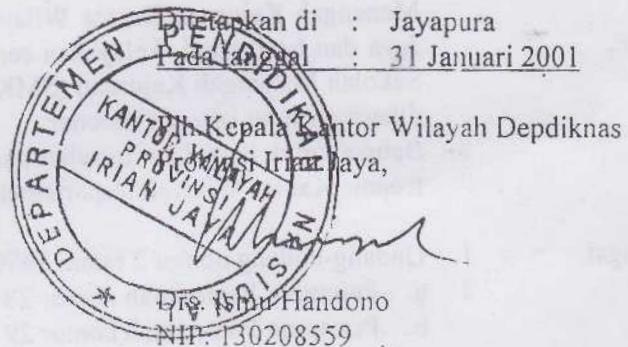 Ditetapkan di : Jayapura
Pada tanggal : 31 Januari 2001
Plh.Kepala Kantor Wilayah Depdiknas
Provinsi Irian Jaya,
DEPARTEMEN PENDIDIKAN NASIONAL
KANTOR WILAYAH
PROVINSI
IRIAN JAYA
Drs. Ismu Handono
NIP. 130208559